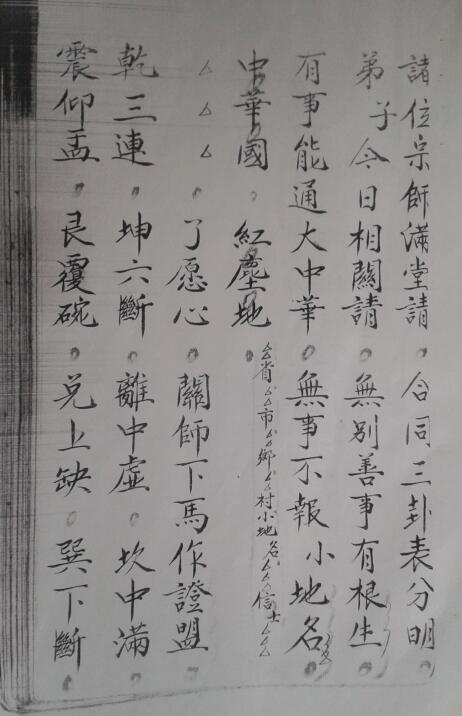 諸位宗師滿堂請。合同三卦表分明。
弟子今日相關請。無別善事有根生。
有事能通大中華。無事不報小地名。
中華國。紅塵地。△省△△市△△鄉△△村小地名△△△信士△△△
△△△。了愿心。關師下馬作證盟。
乾三連。坤六斷。離中虛。坎中滿。
震仰盂。艮覆碗。兑上缺。巽下斷。